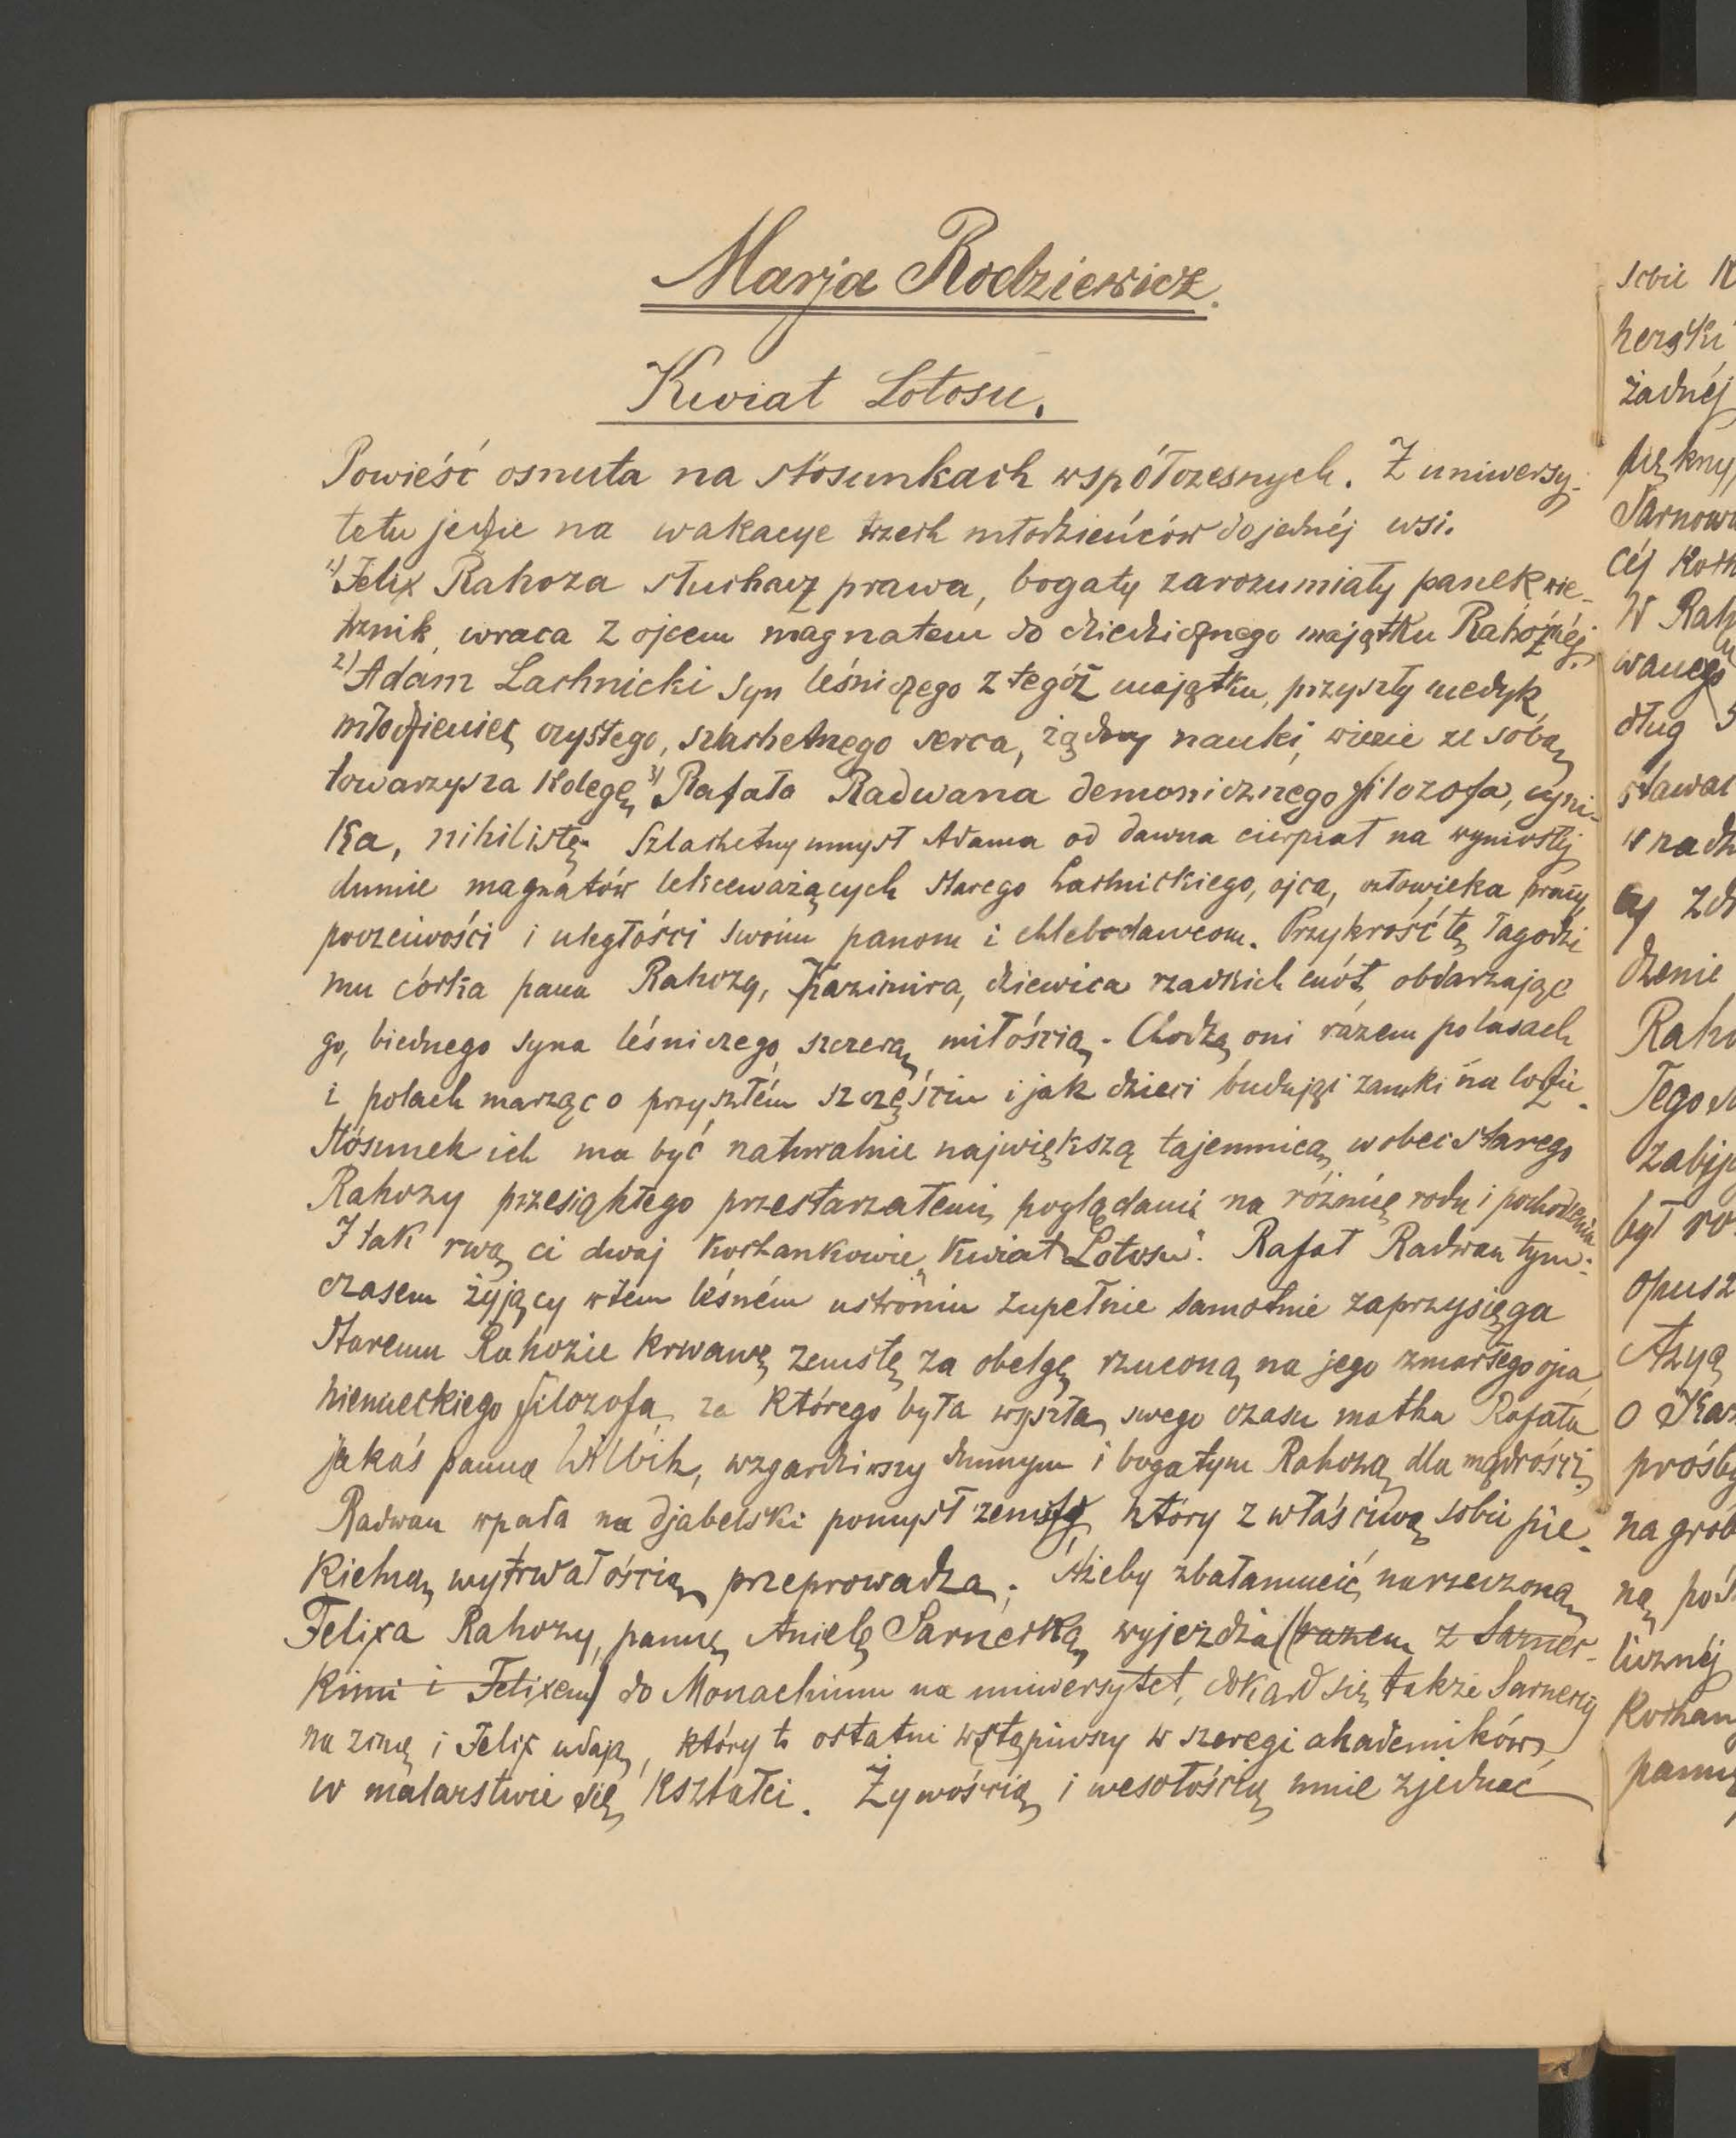 Marja Rodziewicz.
Kwiat Lotosu.
Powieść osnuta na stósunkach współczesnych. Z uniwersy-
tetu jedzie na wakacye trzech młodzieńców do jednéj wsi.
1) Felix Rahoza słuchacz prawa, bogaty zarozumiały panek, wie-
trznik, wraca z ojcem magnatem do dziedzicznego majątku Rahoźnéj.
2) Adam Lachnicki syn leśniczego z tegóż majątku, przyszły medyk,
młodzieniec czystego, szlachetnego serca, żądny nauki, wiezie ze sobą
towarzysza kolegę 3) Rafała Radwana demonicznego filozofa, cyni-
ka, nihilistę. Szlachetny umysł Adama od dawna cierpiał na wyniosłéj
dumie magnatów lekceważących starego Lachnickiego, ojca, człowieka pracy,
poczciwości i uległości swoim panom i chlebodawcom. Przykrość tę łagodzi
mu córka pana Rahozy, Kazimira, dziewica rzadkich cnót, obdarzając
go, biednego syna leśniczego, szczerą miłością. Chodzą oni razem po lasach
i polach marząc o przyszłém szczęściu i jak dzieci budując zamki na lodzie.
Stósunek ich ma być naturalnie największą tajemnicą wobec starego
Rahozy przesiąkłego przestarzałemi poglądami na różnicę rodu i pochodzenia.
I tak rwą ci dwaj kochankowie „Kwiat Lotosu". Rafał Radwan tym-
czasem żyjący w tem leśném ustroniu zupełnie samotnie zaprzysięga
staremu Rahozie krwawę zemstę za obelgę rzuconą na jego zmarłego ojca,
niemieckiego filozofa, za którego była wyszła swego czasu matka Rafała
jakaś panna, wzgardziwszy dumnym i bogatym Rahozą dla mądrości.
Radwan wpada na djabelski pomysł zemsty, który z właściwą sobie pie-
kielną wytrwałością przeprowadza. Ażeby zbałamucić narzeczoną
Felixa Rahozy, pannę Anielę Sarnecką, wyjeżdża (razem z Sarnec-
kimi i Felixem) do Monachium na uniwersytet, dokąd się także Sarneccy
na zimę i Felix udają, który to ostatni wstąpiwszy w szeregi akademików,
w malarstwie się kształci. Żywością i wesołością umie zjednać